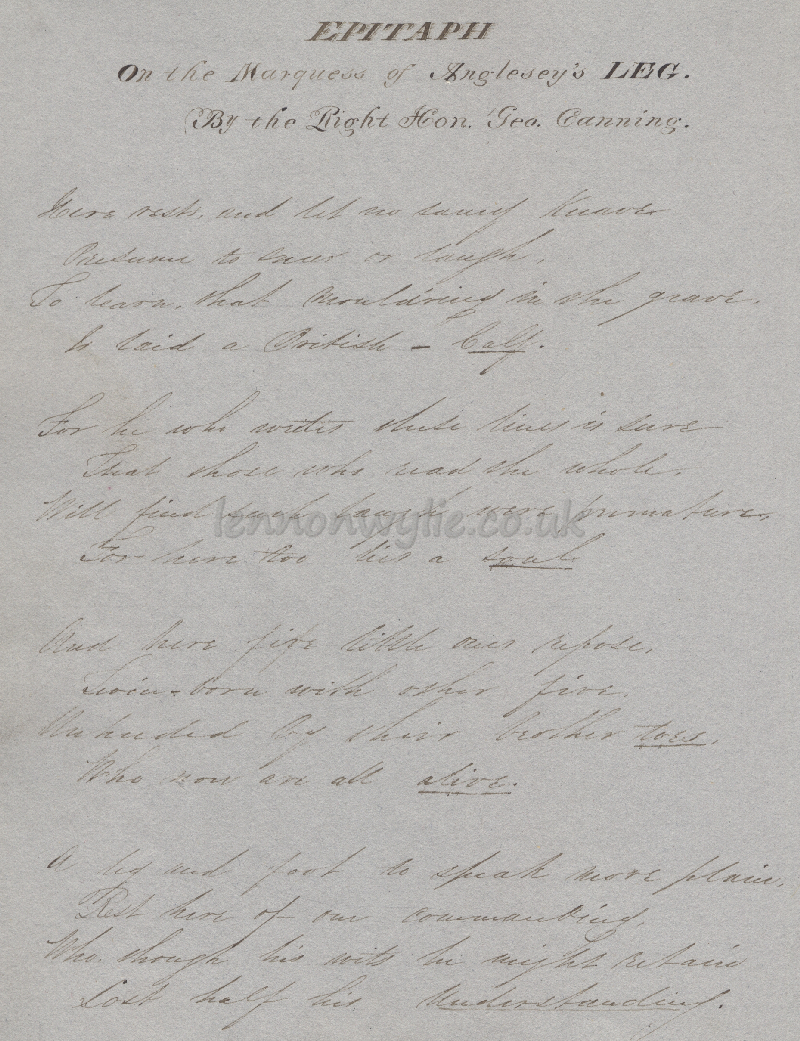 EPITAPH
On the Marquess of Anglesey's LEG.
By the Right Hon. Geo. Canning.
Here rests, and let no saucy Knave
Presume to sneer or laugh,
To learn, that mould'ring in the grave,
Is laid a British – Calf.
For he who writes these lines is sure
That those who read the whole,
Will find such laugh were premature,
For here too lies a soal
And here five little ones repose,
Twin-born with other five,
Unheeded by their brother toes,
Who now are all alive.
A leg and foot to speak more plain,
Rest here of one commanding,
Who though his wits he might retain
Lost half his Understanding.
lennonwylie.co.uk